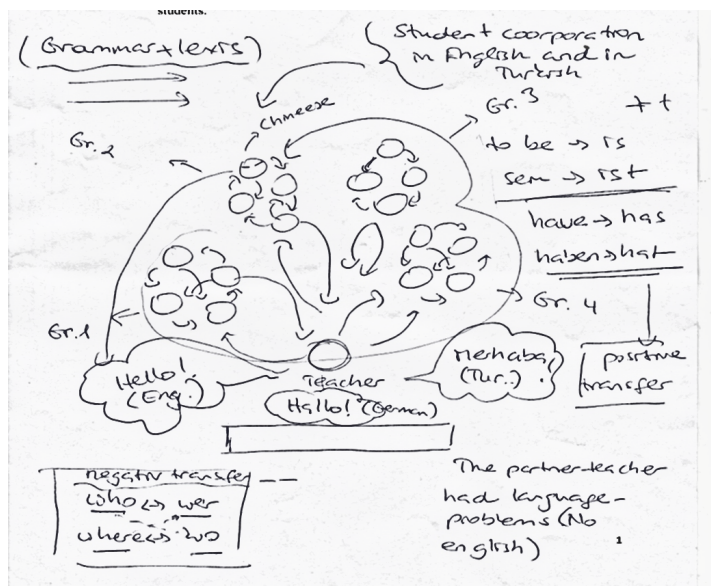 students.
(Grammar + lexis)
Student coorporation
in English and in
Turkish
Chineese
Gr. 3
++
Gr. 2
to be → is
sein → ist
have → has
haben → hat
Gr. 4
Gr. 1
positive
transfer
Hello!
(Eng.)
Teacher
Hallo! (German)
Merhaba!
(Tur..)
negativ transfer
who ↔ wer
where ↔ wo
The partner-teacher
had language-
problems (No
english)
1